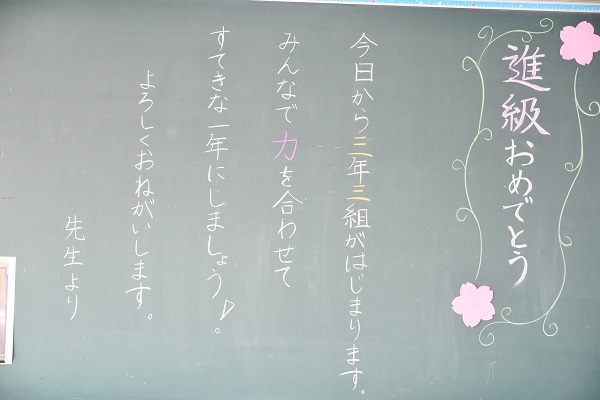 進級おめでとう
今日から三年三組がはじまります。
みんなで力を合わせて
すてきな一年にしましょう!。
よろしくおねがいします。
先生より